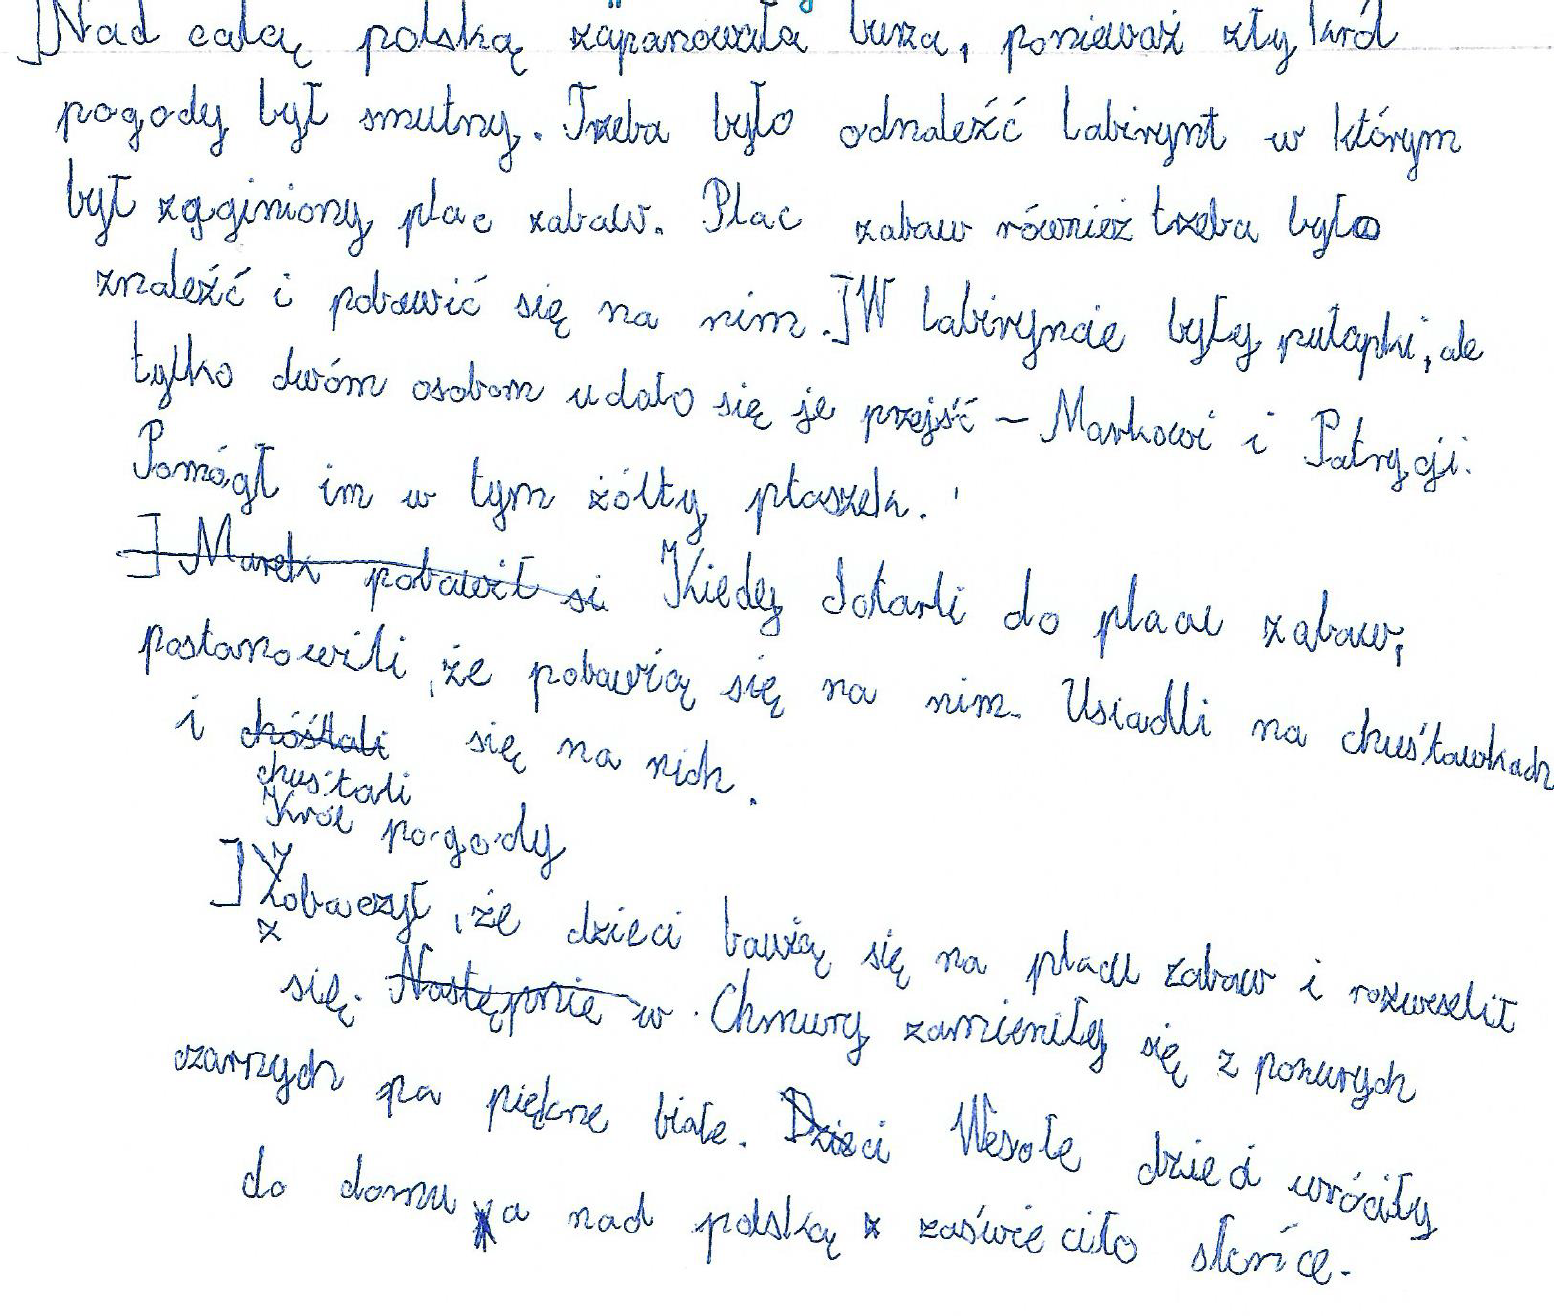 Nad całą polską zapanowała burza, ponieważ zły król
pogody był smutny. Trzeba było odnaleźć labirynt w którym
był zaginiony plac zabaw. Plac zabaw również trzeba było
znaleźć i pobawić się na nim. W labiryncie były pułapki, ale
tylko dwóm osobom udało się je przejść – Markowi i Patrycji.
Pomógł im w tym żółty ptaszek.
Marek pobawił si Kiedy dotarli do placu zabaw,
postanowili, że pobawią się na nim. Usiadli na chuśtawkach
i chóśtali się na nich.
chuśtali
Król pogody
Zobaczył, że dzieci bawią się na placu zabaw i rozweselił
z
się. Następnie w. Chmury zamieniły się z ponurych
czarnych na piękne białe. Dzieci Wesołe dzieci wróciły
do domu a nad polską zaświeciło słońce.